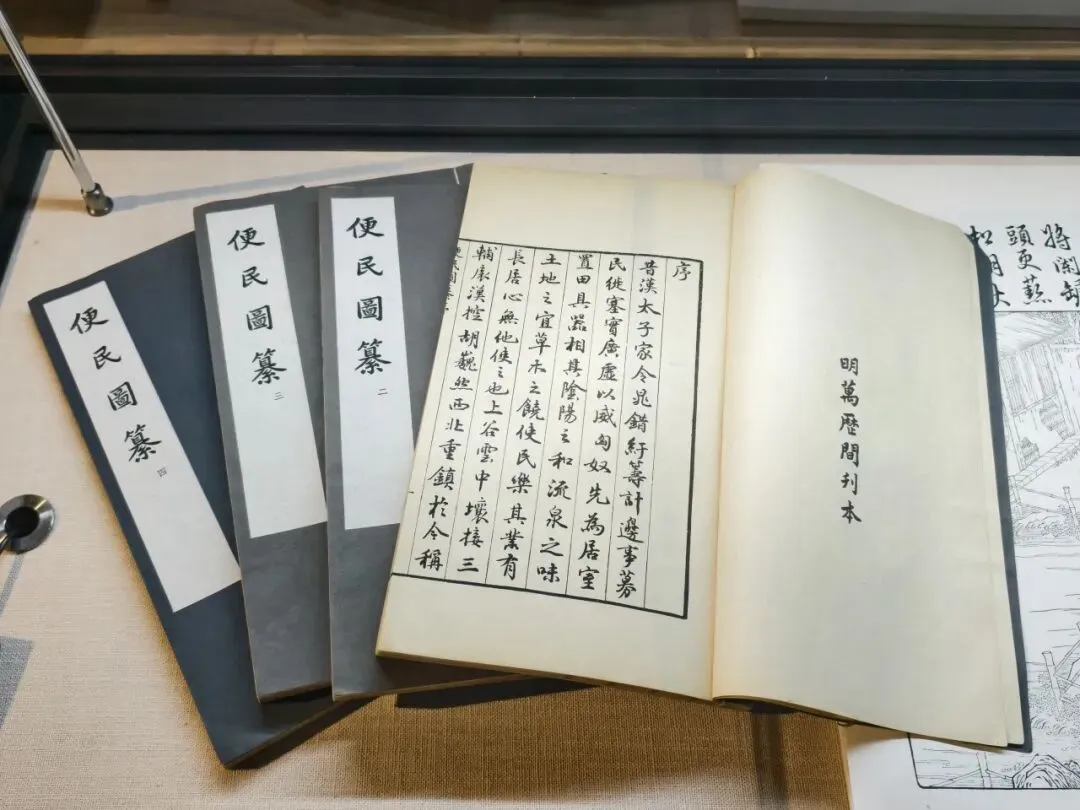 頭更蒸
明萬歷間刊本
序
昔漢太子家令晁錯紆籌計邊事募
民徙塞實廣虛以威匈奴先為居室
置田具器相其陰陽之和流泉之味
土地之宜草木之饒使民樂其業有
長居心無他使之也上谷雲中壤接三
輔康漢控胡巍然西北重鎮於今稱
便民圖纂 二
便民圖纂 三
便民圖纂 四